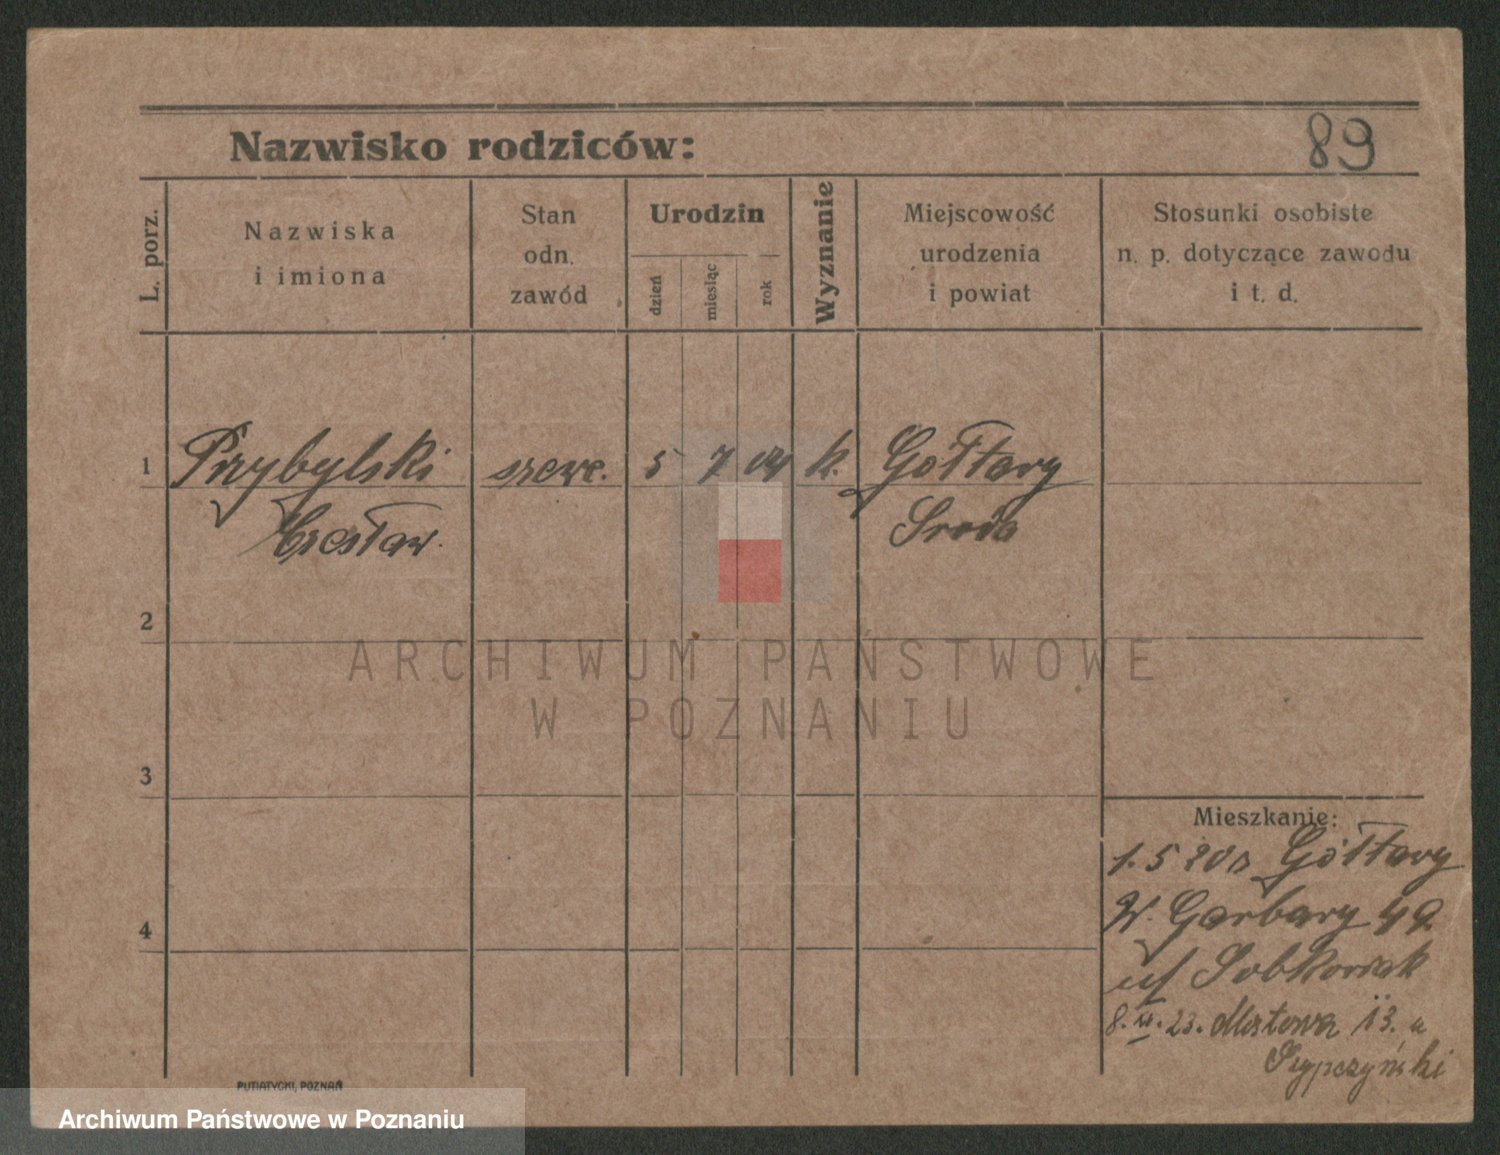 Nazwisko rodziców:
89
L. porz.
Nazwiska
i imiona
Stan
odn.
zawód
Urodzin
dzień
miesiąc
rok
Wyznanie
Miejscowość
urodzenia
i powiat
Stosunki osobiste
n. p. dotyczące zawodu
i t. d.
1 Przybylski szewc. 5 7 04 k. Gołtary
Czesław. Sroda
2
ARCHIWUM PAŃSTWOWE
W POZNANIU
3
Mieszkanie:
1. 5 Gółtary
W. Garbary 49.
Sobkowiak
4
8. 23. Mostowa 13. a
PUTIATYCKI, POZNAŃ
Archiwum Państwowe w Poznaniu